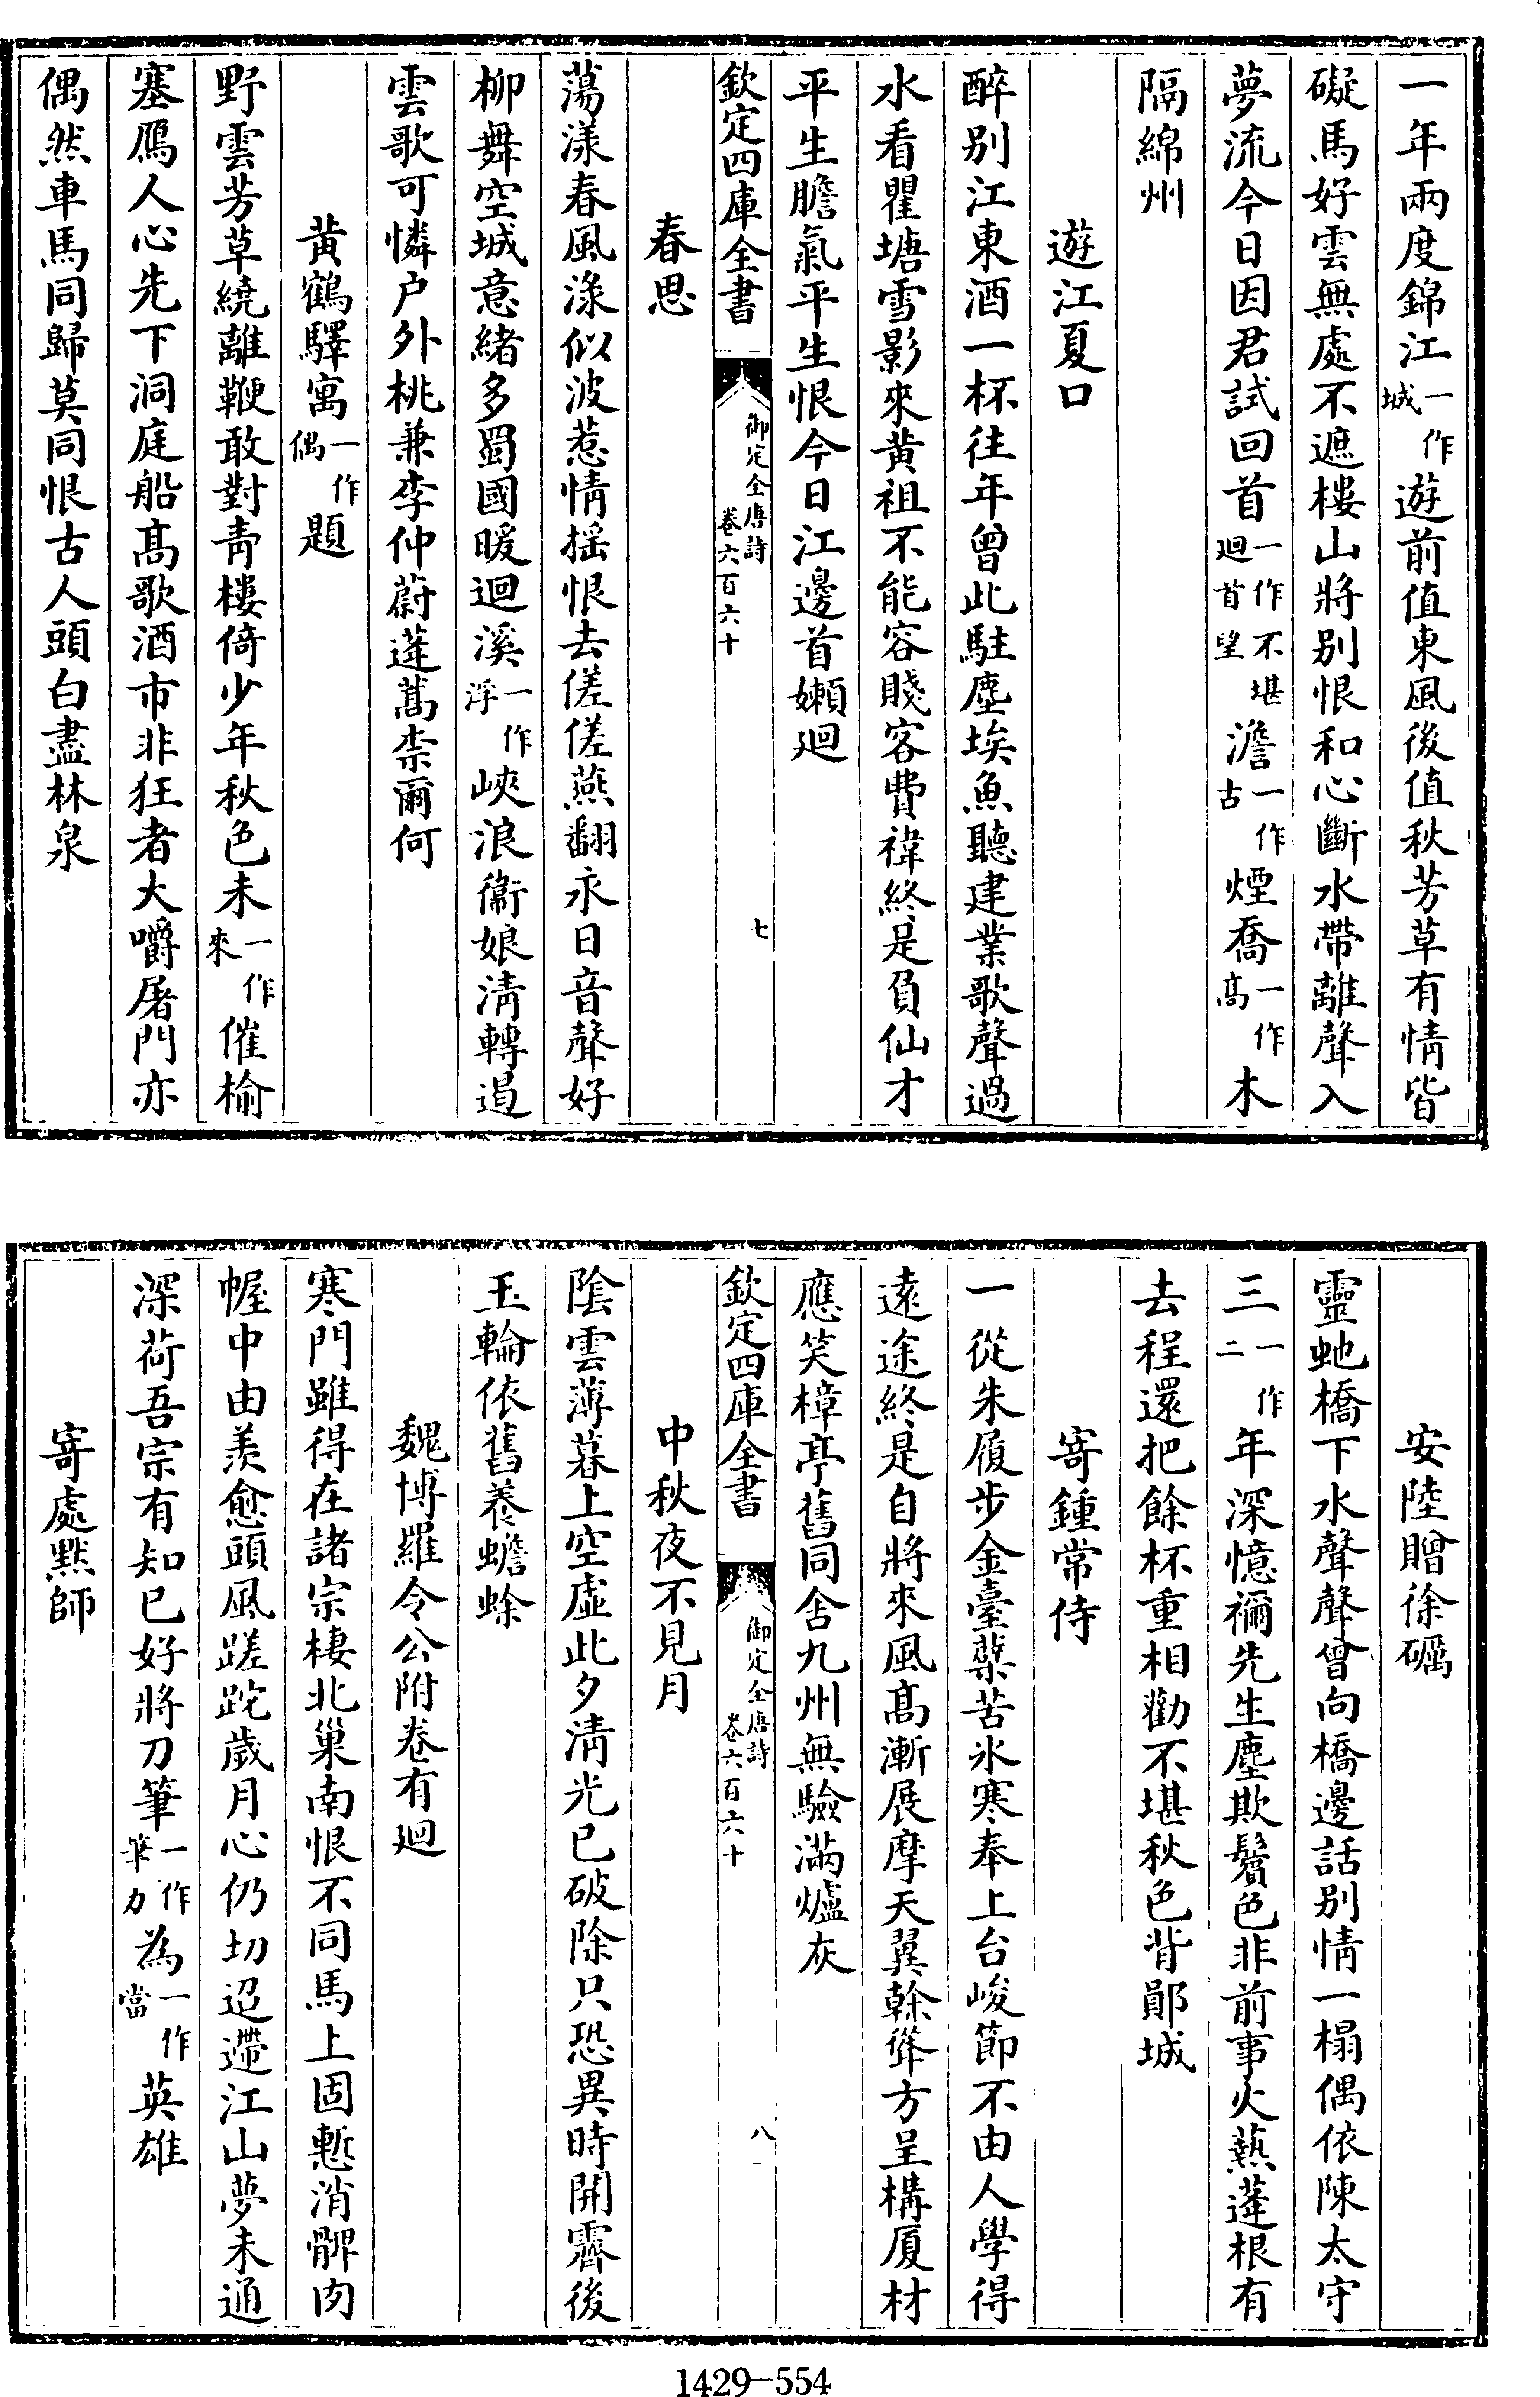 一年兩度錦江一作城遊前值東風後值秋芳草有情皆
礙馬好雲無處不遮樓山將别恨和心斷水帶離聲入
夢流今日因君試回首一作不堪廻首望澹一作古煙喬一作高木
隔綿州
遊江夏口
醉别江東酒一杯往年曾此駐塵埃魚聽建業歌聲過
水看瞿塘雪影來黄祖不能容賤客費禕終是負仙才
平生膽氣平生恨今日江邊首嬾廻
欽定四庫全書
御定全唐詩
卷六百六十
七
春思
蕩漾春風淥似波惹情揺恨去傞傞燕翻永日音聲好
柳舞空城意緒多蜀國暖迴溪一作浮峽浪衞娘清轉遏
雲歌可憐户外桃兼李仲蔚蓬蒿柰爾何
黄鶴驛寓一作偶題
野雲芳草繞離鞭敢對青樓倚少年秋色未一作來催榆
塞鴈人心先下洞庭船髙歌酒市非狂者大嚼屠門亦
偶然車馬同歸莫同恨古人頭白盡林泉
安陸贈徐礪
靈虵橋下水聲聲曾向橋邊話别情一榻偶依陳太守
三一作二年深憶禰先生塵欺鬢色非前事火爇蓬根有
去程還把餘杯重相勸不堪秋色背鄖城
寄鍾常侍
一從朱履步金臺蘖苦氷寒奉上台峻節不由人學得
遠途終是自將來風髙漸展摩天翼榦聳方呈構厦材
應笑樟亭舊同舍九州無驗滿爐灰
欽定四庫全書
御定全唐詩
卷六百六十
八
中秋夜不見月
隂雲薄暮上空虛此夕清光已破除只恐異時開霽後
玉輪依舊養蟾蜍
魏博羅令公附卷有廻
寒門雖得在諸宗棲北巢南恨不同馬上固慙消髀肉
幄中由羨愈頭風蹉跎歲月心仍切迢遰江山夢未通
深荷吾宗有知已好將刀筆一作筆力為一作當英雄
寄處黙師
1429—554